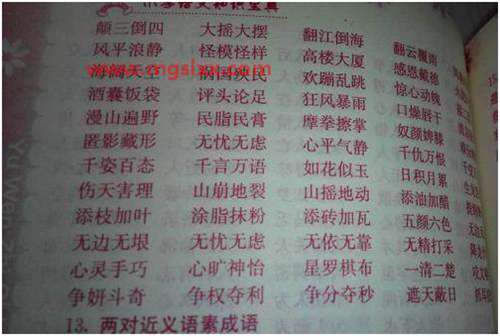 小学语文知识宝典
颠三倒四 大摇大摆 翻江倒海 翻云覆雨
风平浪静 怪模怪样 高楼大厦 感恩戴德
www.mgslxx.com
祸国殃民 欢蹦乱跳 惊心动魄
酒囊饭袋 评头论足 狂风暴雨 口燥唇干
漫山遍野 民脂民膏 摩拳擦掌 奴颜婢膝
匿影藏形 无忧无虑 心平气静 千仇万恨
千姿百态 千言万语 如花似玉 日积月累
伤天害理 山崩地裂 山摇地动 添油加醋
添枝加叶 涂脂抹粉 添砖加瓦 五颜六色
无边无垠 无忧无虑 无依无靠 无精打采
心灵手巧 心旷神怡 星罗棋布 一清二楚
争妍斗奇 争权夺利 争分夺秒 遮天蔽日
13. 两对近义语素成语